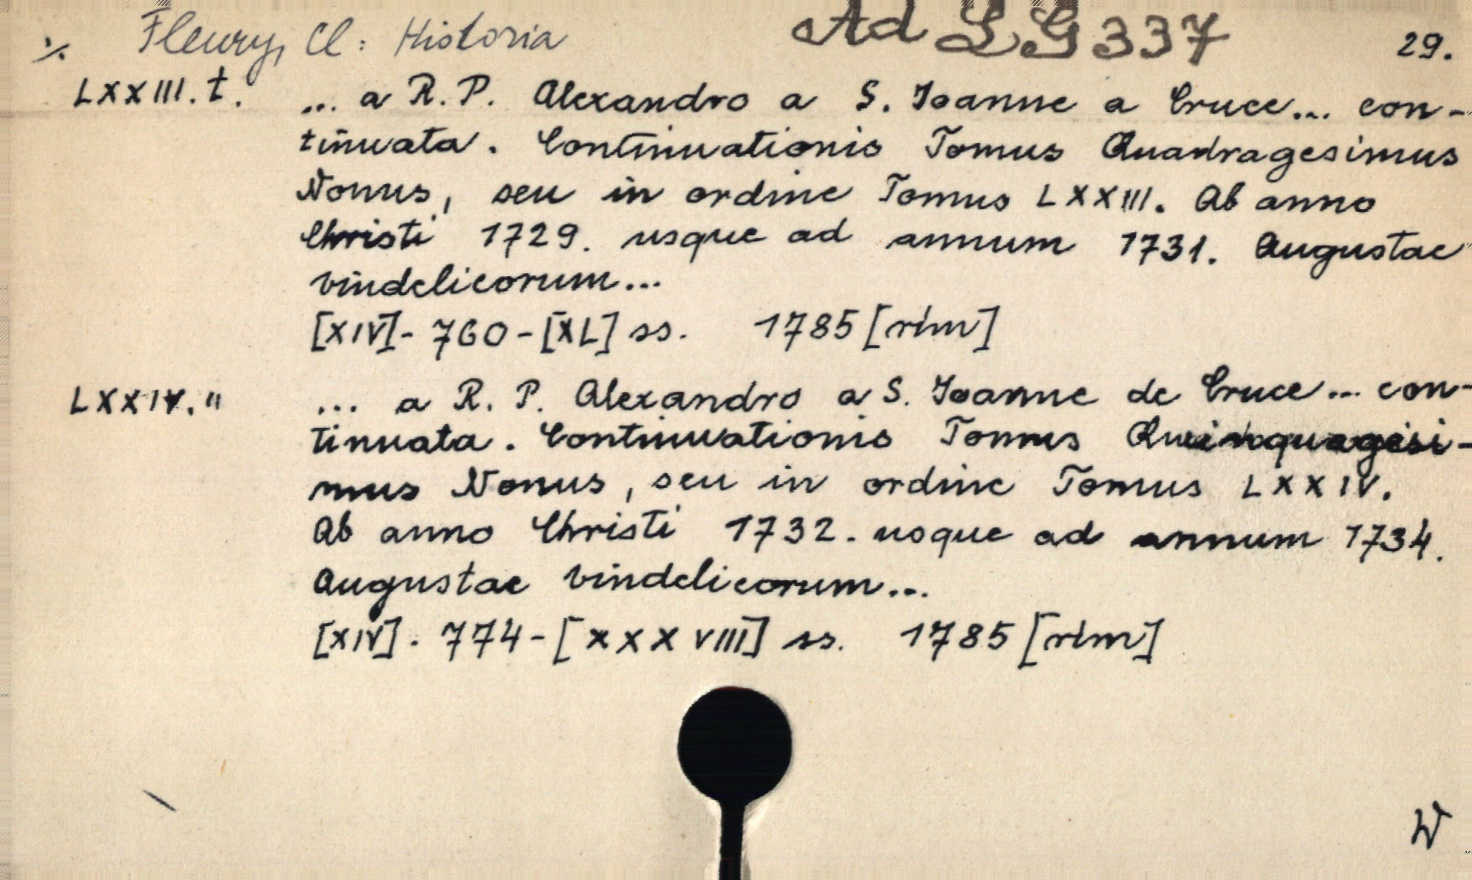 ·/. Fleury, Cl: Historia Ad LG 337 29.
LXXIII. t. ... a R. P. Alexandro a S. Joanne a Cruce... con-
tinuata. Continuationis Tomus Quadragesimus
Nonus, seu in ordine Tomus LXXIII. Ab anno
Christi 1729. usque ad annum 1731. Augustae
vindelicorum...
[XIV]- 760-[XL] ss. 1785 [rlm]
LXXIV. " ... a R. P. Alexandro a S. Joanne de Cruce... con-
tinuata. Continuationis Tomus Quinquagesi-
mus Nonus, seu in ordine Tomus LXXIV.
Ab anno Christi 1732. usque ad annum 1734.
Augustae vindelicorum...
[XIV]. 774-[XXXVIII] ss. 1785 [rlm]
W